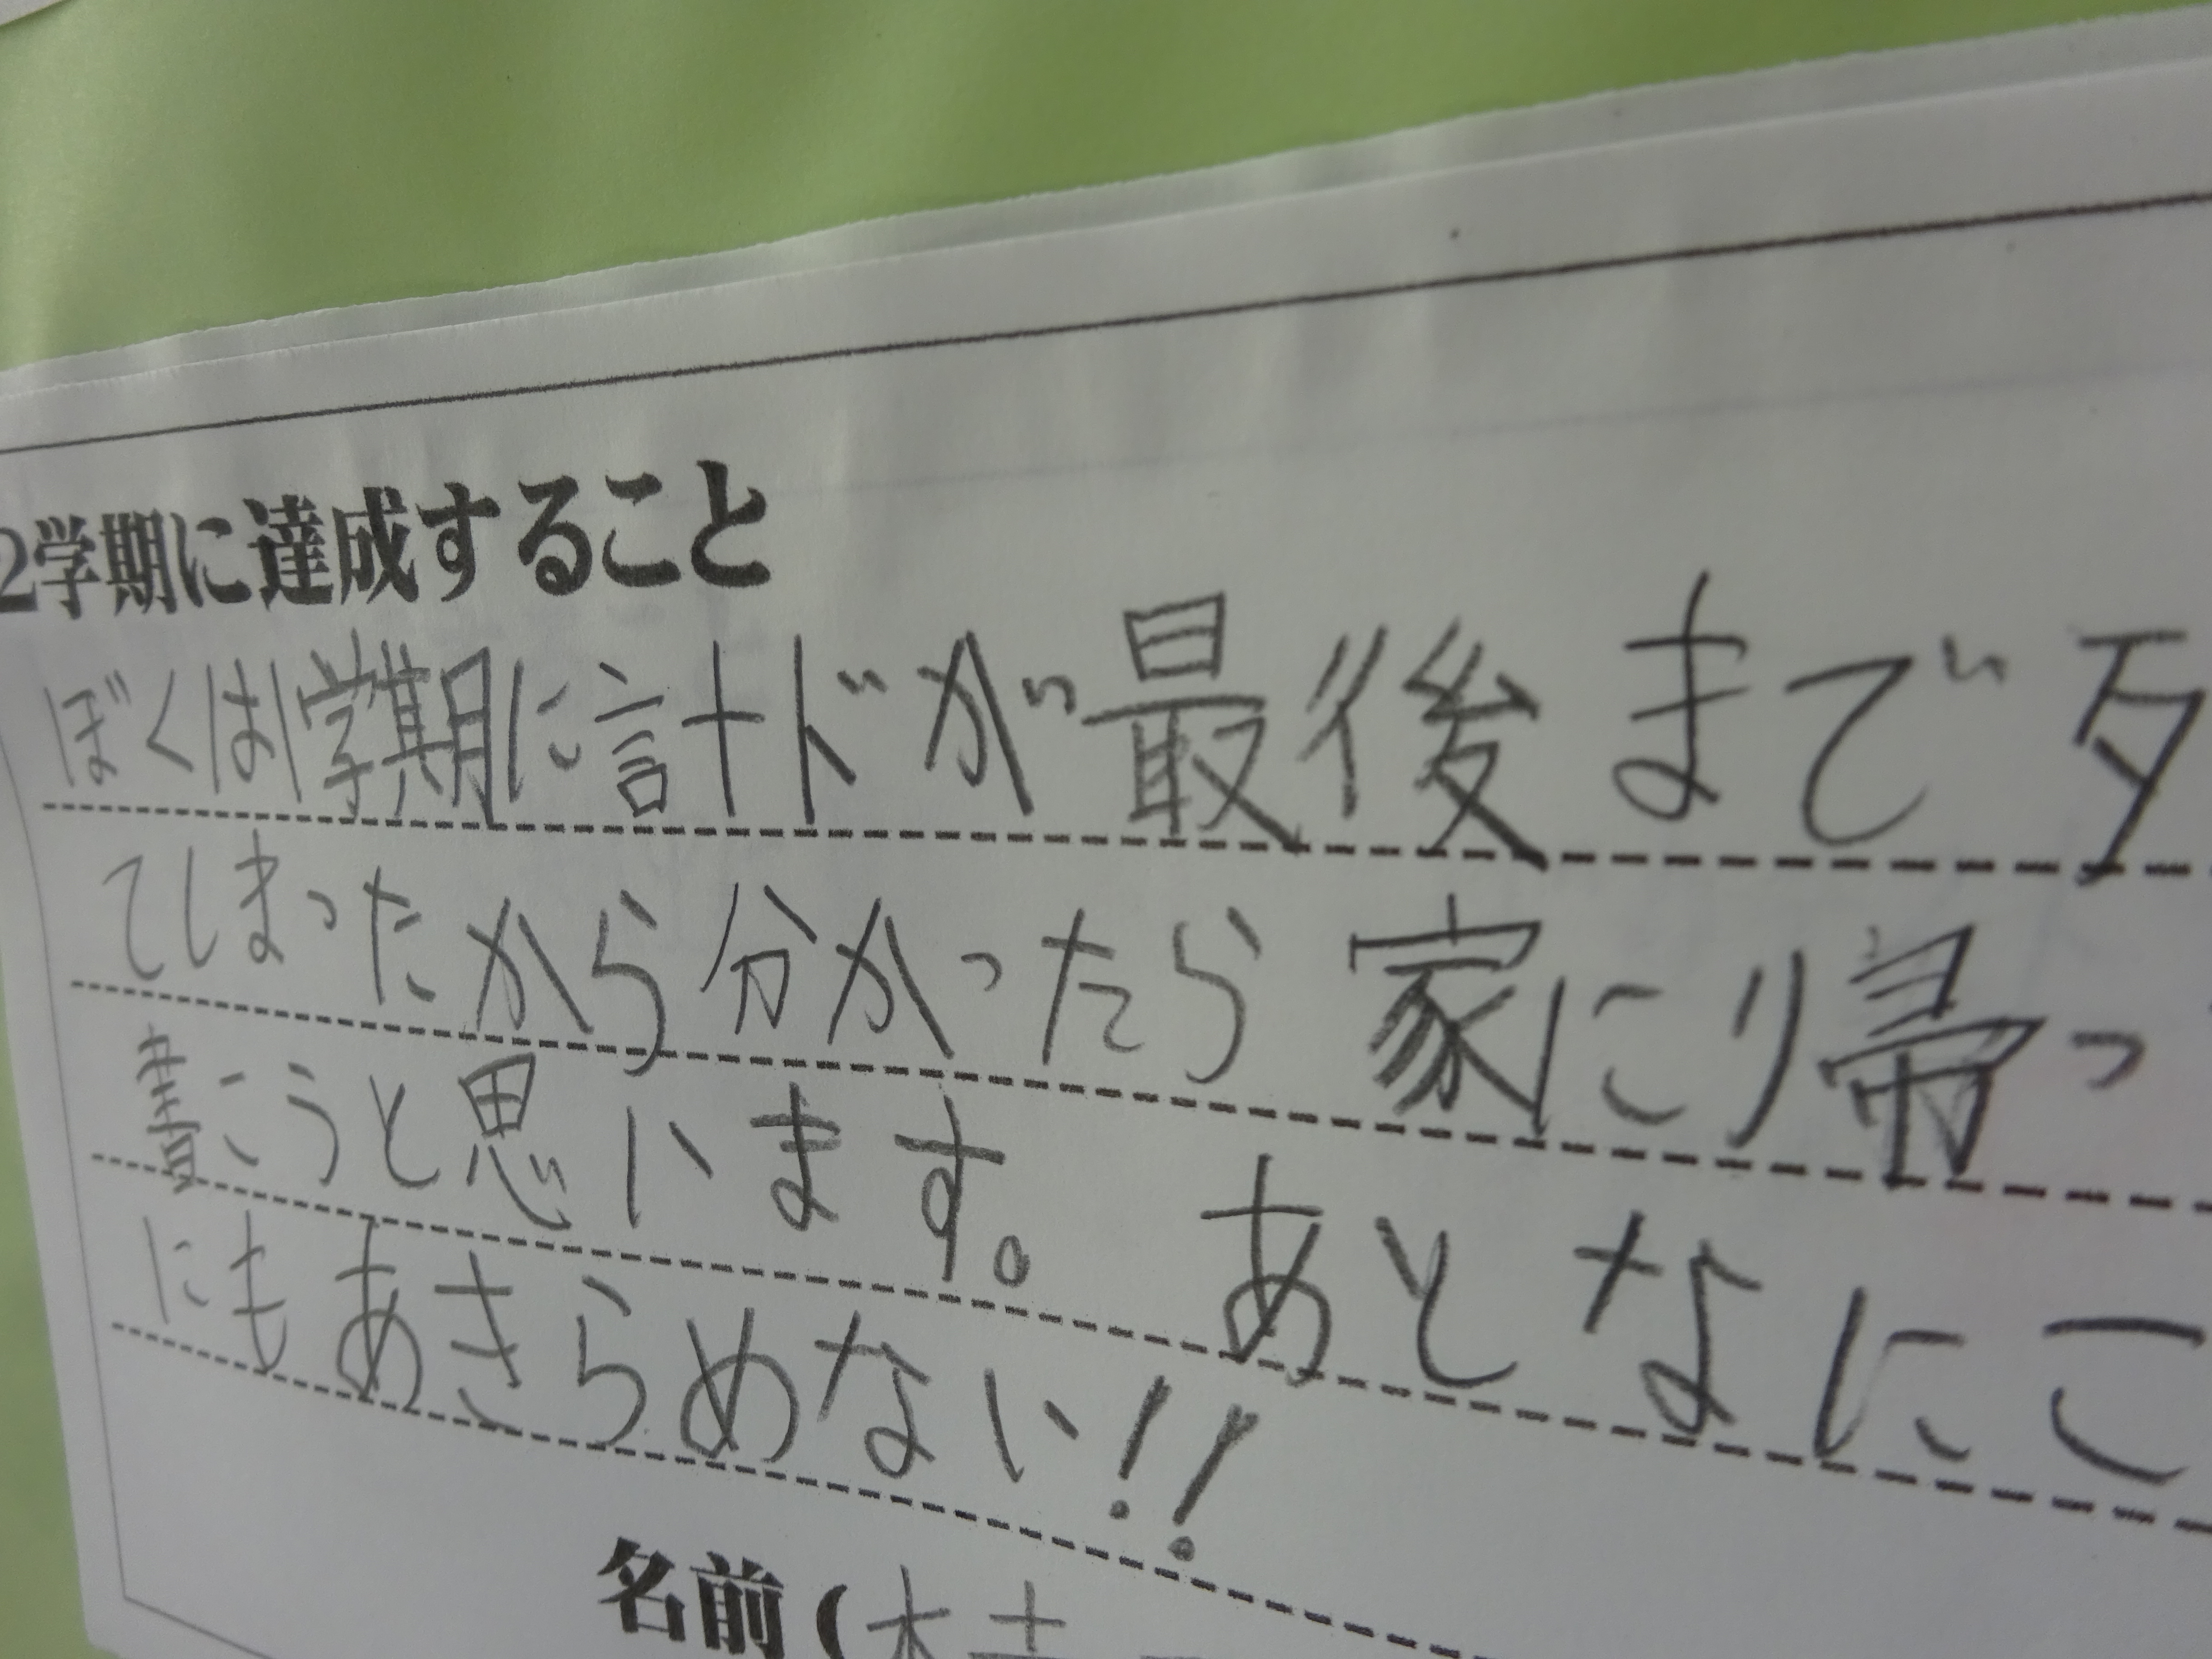 2学期に達成すること
ぼくは1学期に計ドが最後まで
てしまったから分かったら家に帰っ
書こうと思います。 あとなにご
にもあきらめない!!
名前(木